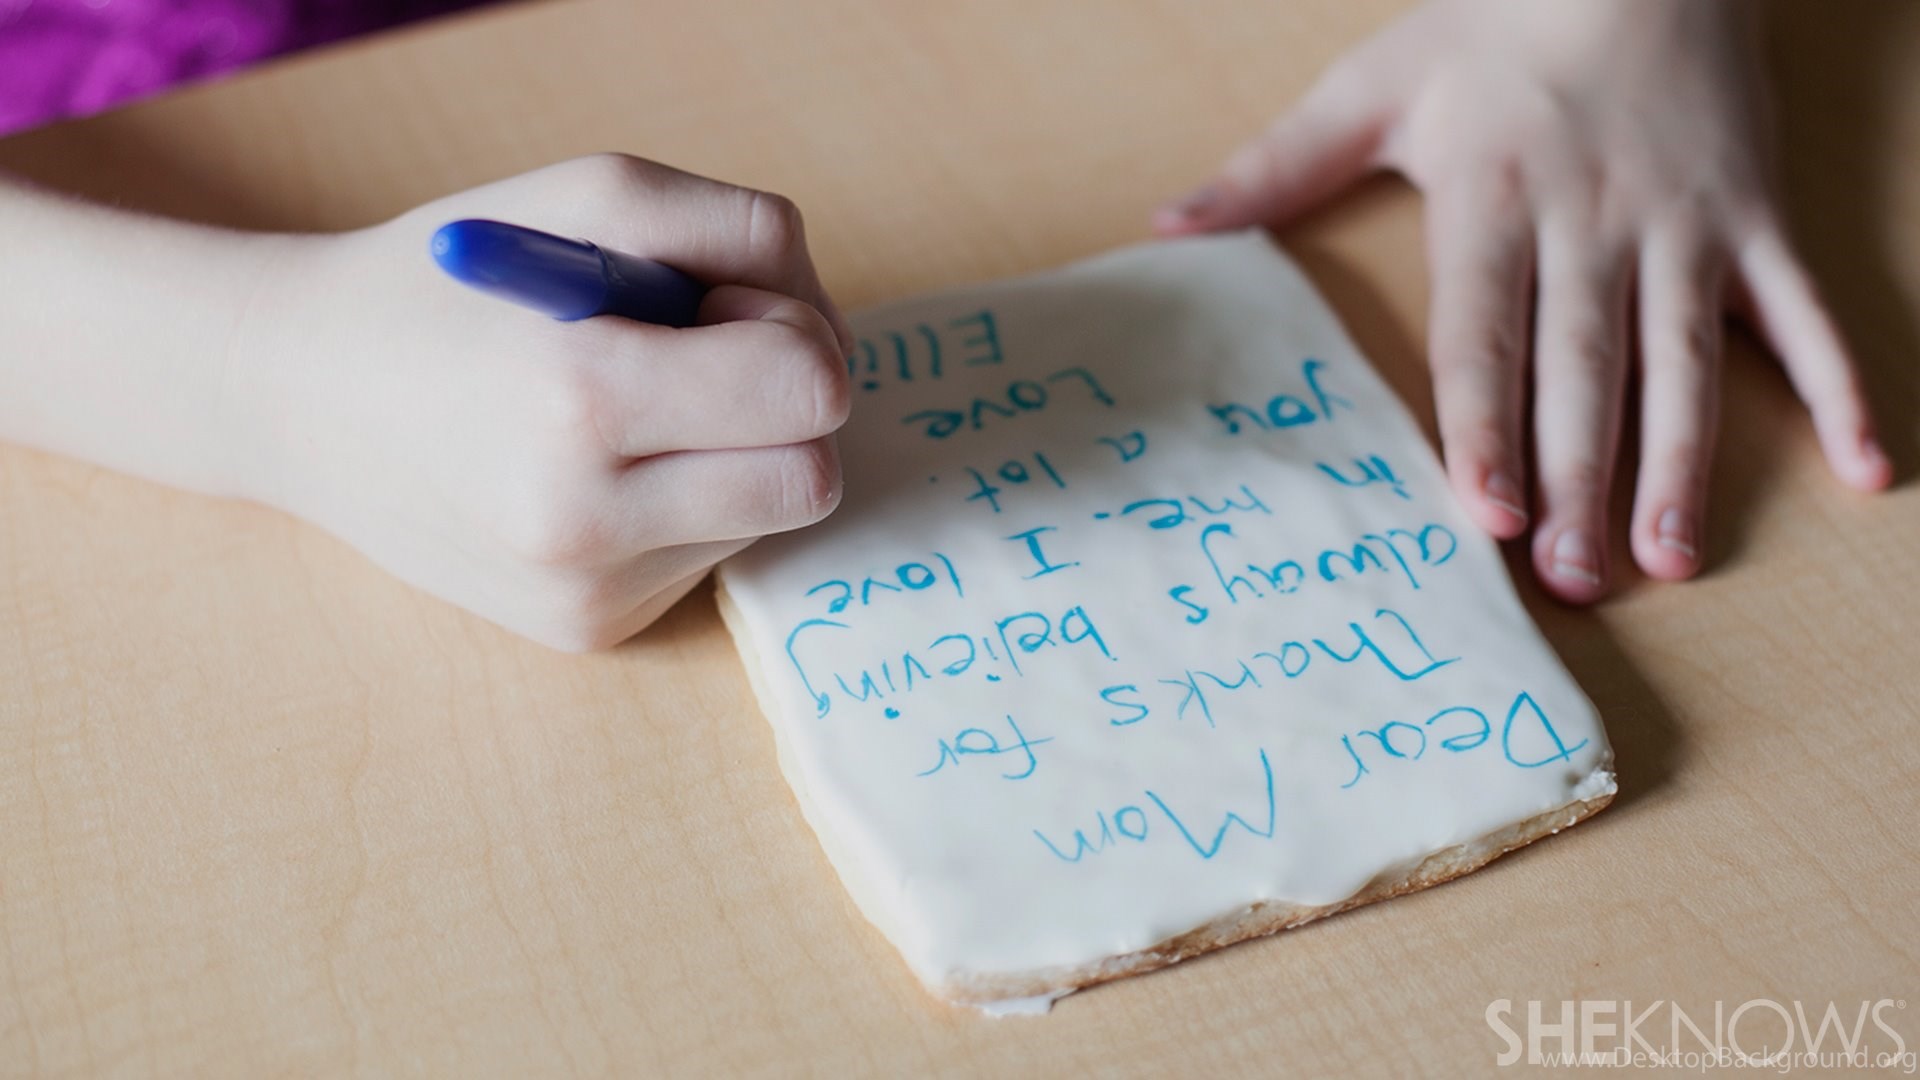 Dear Mom
Thanks for
always believing
in me. I love
you a lot.
Love
Elli
SHEKNOWS®
www.DesktopBackground.org